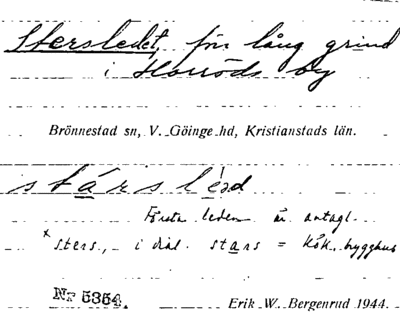 Stersledet, för lång grind
i Horröds by
Brönnestad sn, V. Göinge hd, Kristianstads län.
stárslèd
Första leden är antagl.
*sters, i dial. stars = kök, brygghus
Nr 5354.
Erik W. Bergenrud 1944.